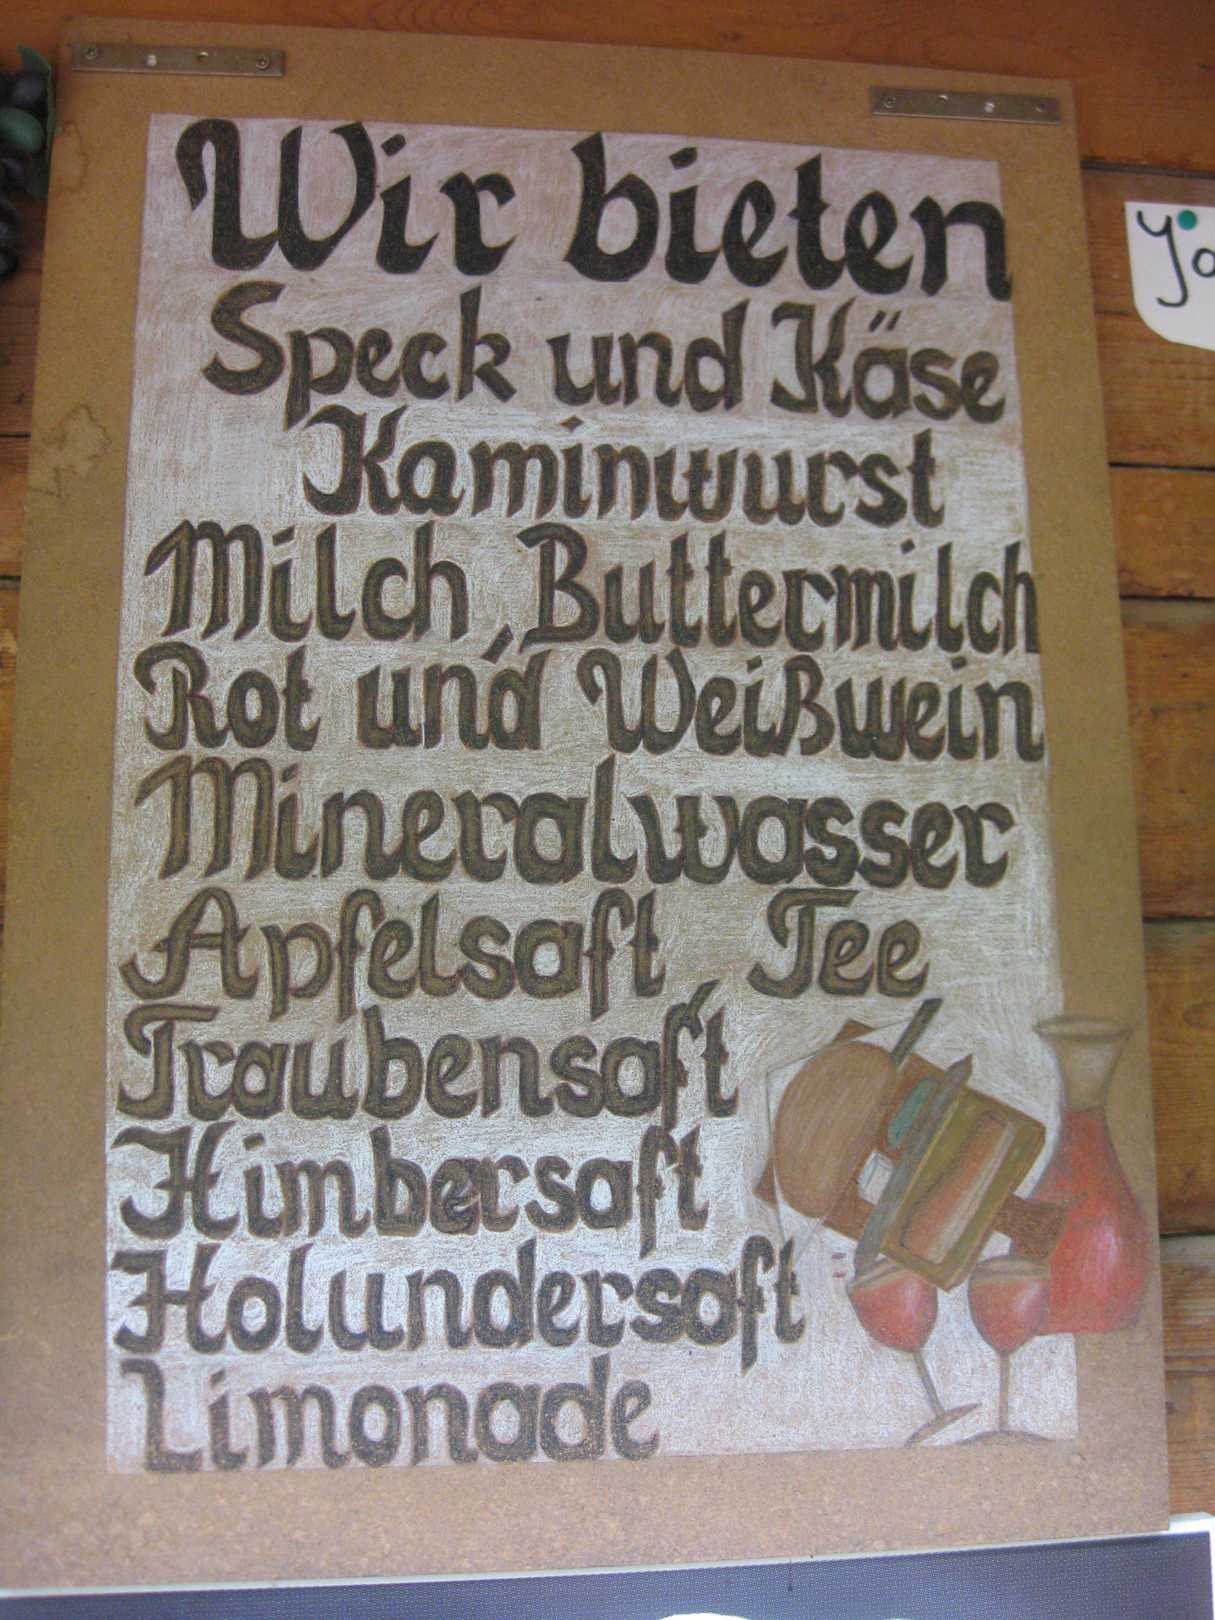 Wir bieten
Speck und Käse
Kaminwurst
Milch, Buttermilch
Rot und Weißwein
Mineralwasser
Apfelsaft Tee
Traubensaft
Himbersaft
Holundersaft
Limonade